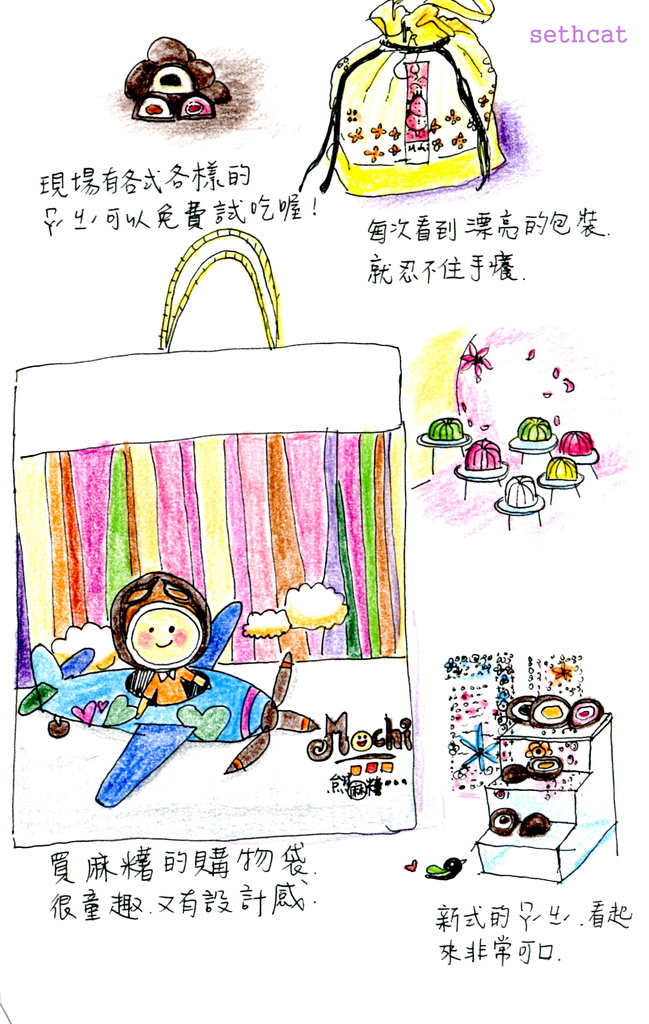 sethcat
現場有各式各樣的
ㄗㄞ ㄓㄧ可以免費試吃喔！
每次看到漂亮的包裝.
就忍不住手癢.
Mochi
Mochi
麻糬...
買麻糬的購物袋.
很童趣.又有設計感.
新式的 .看起
來非常可口.